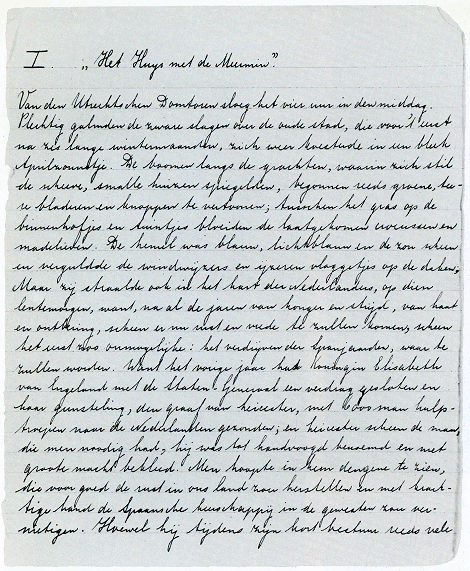 I. „Het Huys met de Meermin".
Van den Utrechtschen Domtoren sloeg het vier uur in den middag.
Plechtig galmden de zware slagen over de oude stad, die voor 't eerst
na zes lange wintermaanden, zich weer koesterde in een bleek
Aprilzonnetje. De boomen langs de grachten, waarin zich stil
de scheeve, smalle huizen spiegelden, begonnen reeds groene, tee-
re bladeren en knoppen te vertoonen; tusschen het gras op de
binnenhofjes en tuintjes bloeiden de laatgekomen crocussen en
madelieven. De hemel was blauw, lichtblauw en de zon scheen
en verguldde de windwijzers en ijzeren vlaggetjes op de daken,
Maar zij straalde ook in het hart der Nederlanders, op dien
lentemorgen, want, na al de jaren van honger en strijd, van haat
en ontbering, scheen er nu rust en vrede te zullen komen, scheen
het eerst zoo onmogelijke: het verdrijven der Spanjaarden, waar te
zullen worden. Want het vorige jaar had koningin Elisabeth
van Engeland met de Staten Generaal een verdrag gesloten en
haar gunsteling, den graaf van Leicester, met 6000 man hulp-
troepen naar de Nederlanden gezonden; en Leicester scheen de man,
die men noodig had, hij was tot landvoogd benoemd en met
groote macht bekleed. Men hoopte in hem dengene te zien,
die voor goed de rust in ons land zou herstellen en met krach-
tige hand de Spaansche heerschappij in de gewesten zou ver-
nietigen. Hoewel hij tijdens zijn kort bestuur reeds vele